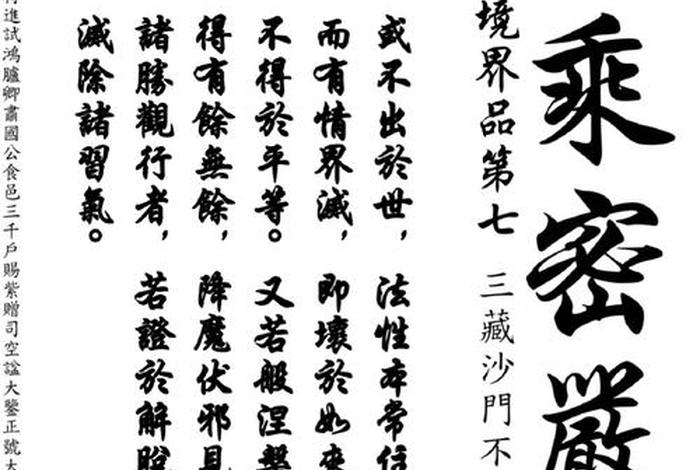 乘密嚴
境界品第七 三藏沙門不
或不出於世, 法性本常住
而有情界滅, 即壞於如來
不得於平等。 又若般涅槃
得有餘無餘, 降魔伏邪見
諸勝觀行者, 若證於解脫
滅除諸習氣。
進試鴻臚卿肅國公食邑三千戶賜紫贈司空諡大鑒正號大